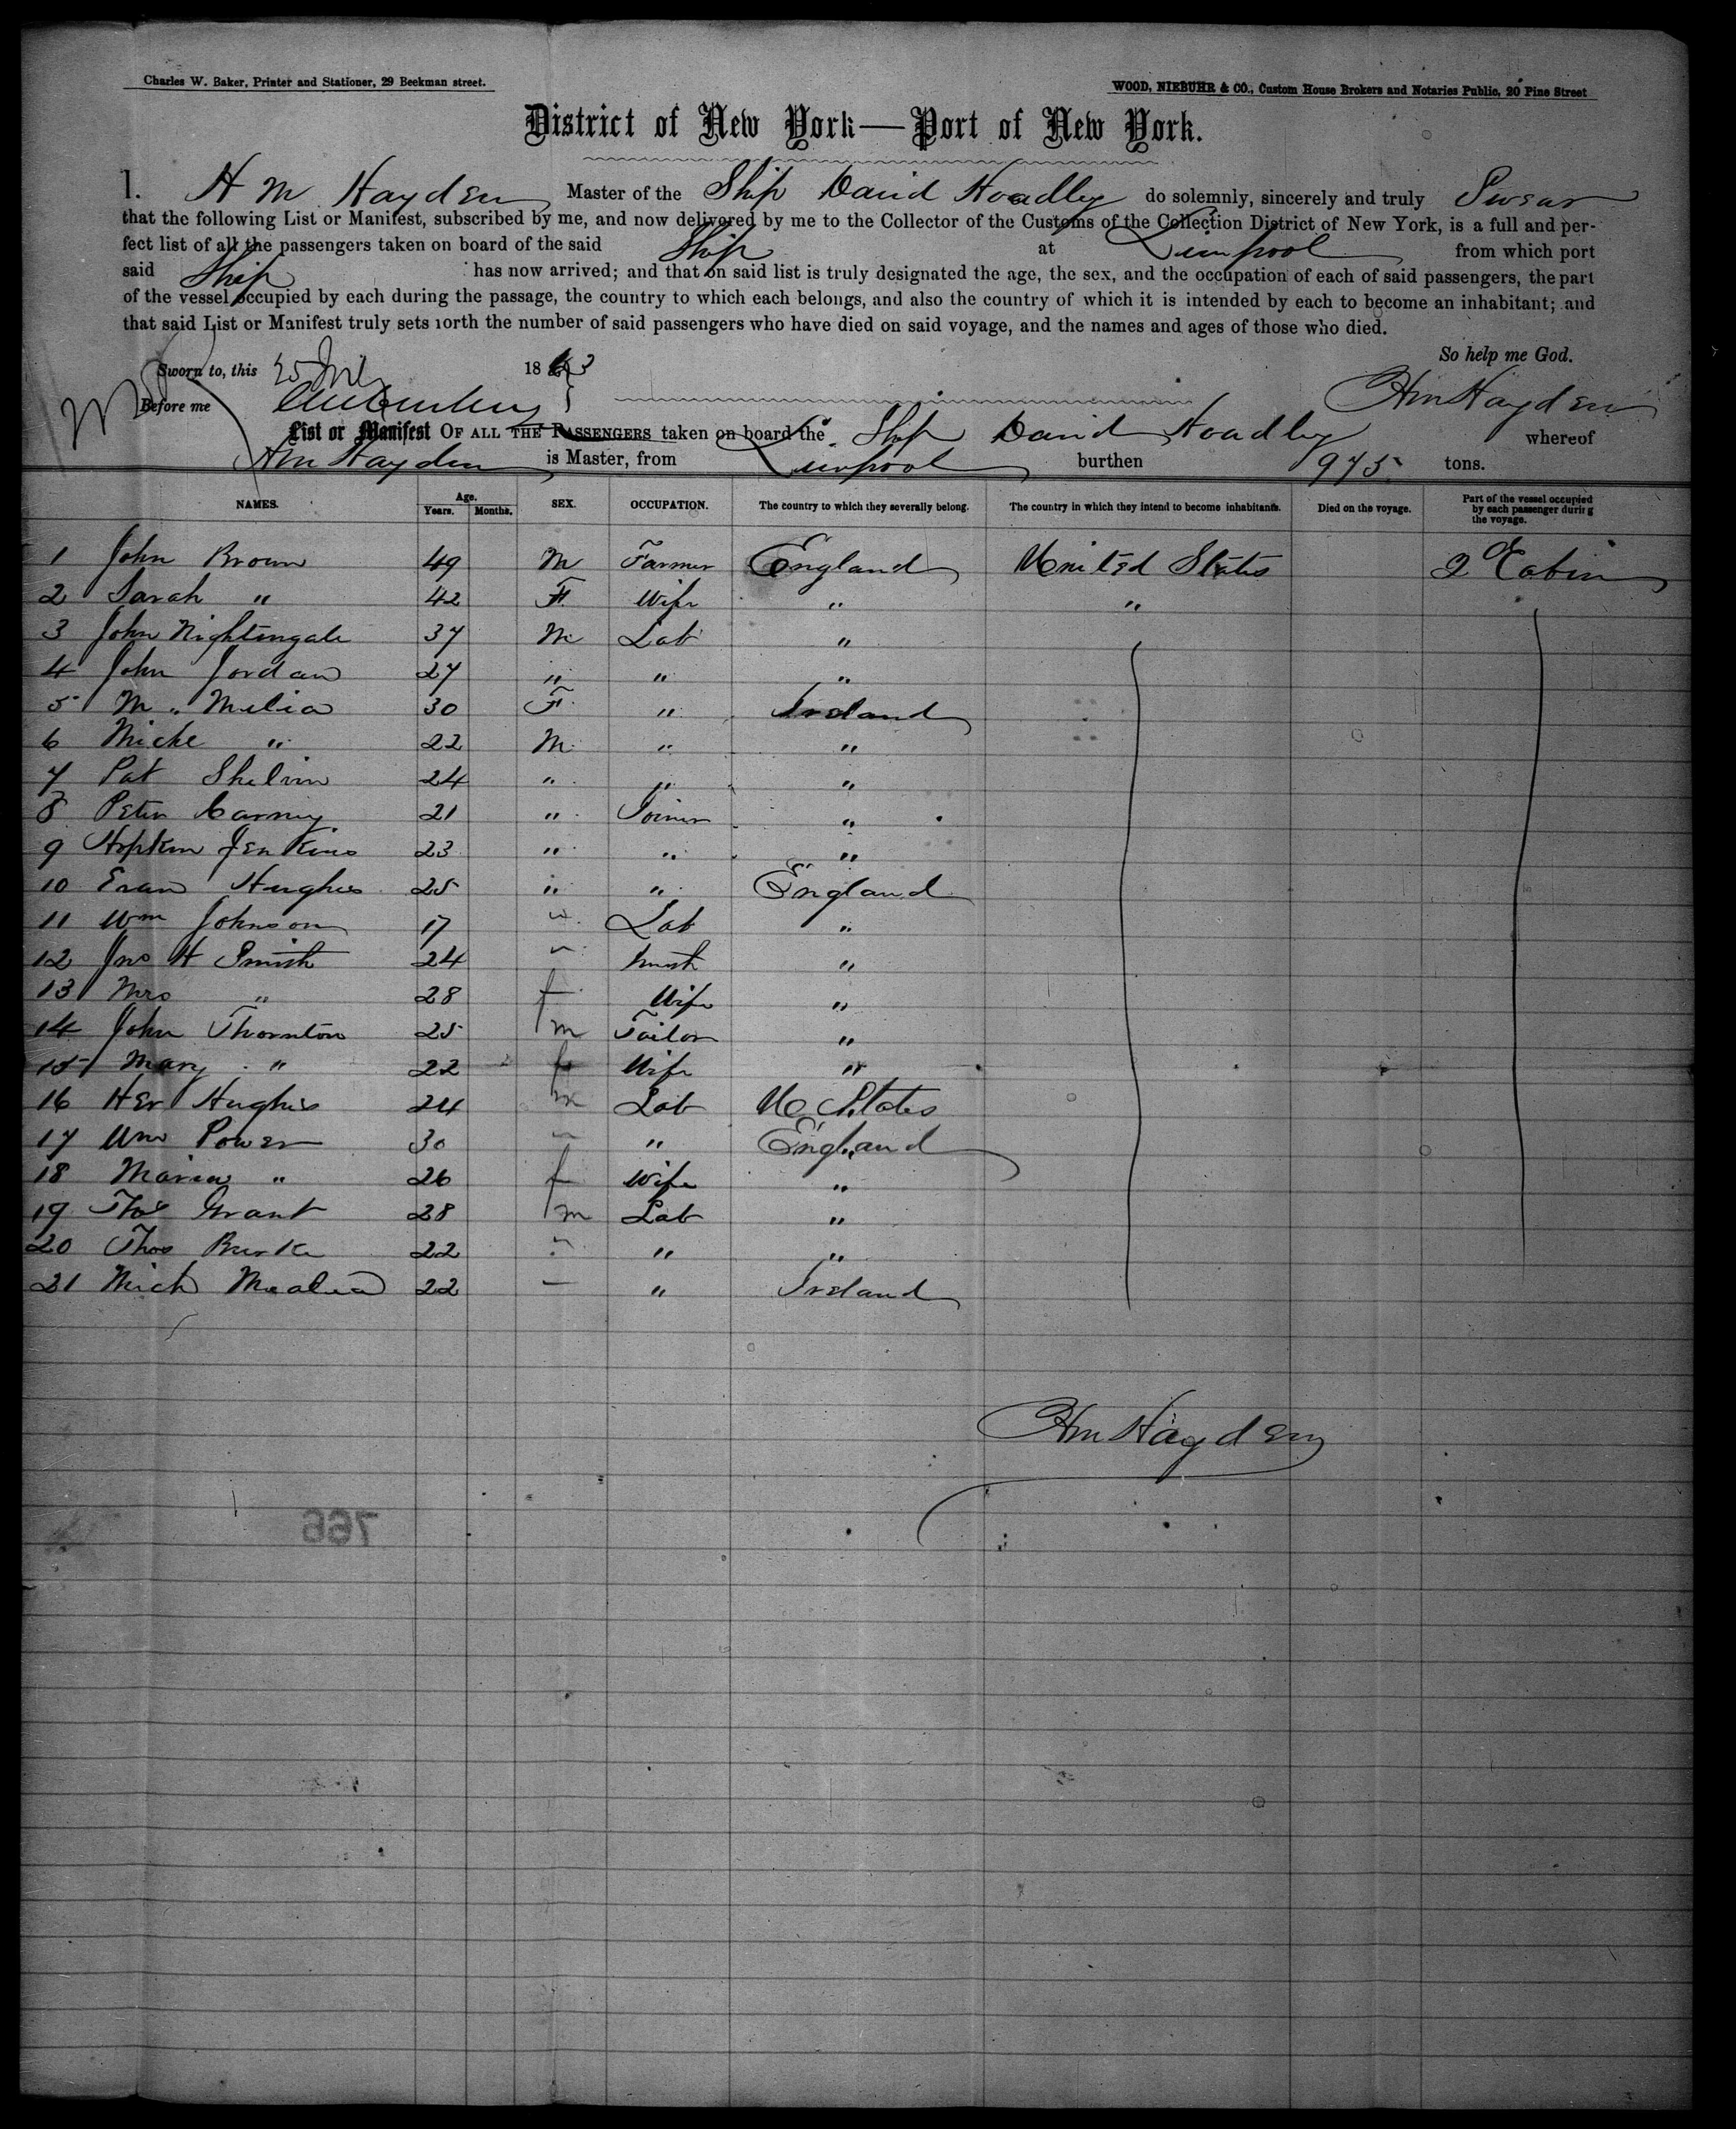 Charles W. Baker, Printer and Stationer, 29 Beekman street.
WOOD, NIEBUHR & CO., Custom House Brokers and Notaries Public, 20 Pine Street
District of New York—Port of New York.
I. H M Hayden Master of the Ship David Hoadley do solemnly, sincerely and truly Swear
that the following List or Manifest, subscribed by me, and now delivered by me to the Collector of the Customs of the Collection District of New York, is a full and per-
fect list of all the passengers taken on board of the said Ship at Liverpool from which port
said Ship has now arrived; and that on said list is truly designated the age, the sex, and the occupation of each of said passengers, the part
of the vessel occupied by each during the passage, the country to which each belongs, and also the country of which it is intended by each to become an inhabitant; and
that said List or Manifest truly sets forth the number of said passengers who have died on said voyage, and the names and ages of those who died.
So help me God.
Sworn to, this 25 1863
Before me HM Hayden
List or Manifest OF ALL THE PASSENGERS taken on board the Ship David Hoadley whereof
HM Hayden is Master, from Liverpool burthen 975 tons.
NAMES. Age. Years. Months. SEX. OCCUPATION. The country to which they severally belong. The country in which they intend to become inhabitants. Died on the voyage. Part of the vessel occupied by each passenger during the voyage.
1 John Brown 49 M Farmer England United States 2d Cabin
2 Sarah " 42 F. Wife " "
3 John Nightingale 37 M Lab "
4 John Jordan 27 " " "
5 M. Melia 30 F " Ireland
6 Miche " 22 M " "
7 Pat Shelvin 24 " " "
8 Peter Carney 21 " Joiner "
9 Hopkin Jenkins 23 " " "
10 Evan Hughes 25 " " England
11 Wm Johnson 17 " Lab "
12 Jno H Smith 24 " "
13 Mrs " 28 f Wife "
14 John Thornton 25 m Tailor "
15 Mary " 22 f Wife "
16 Her Hughes 24 m Lab U States
17 Wm Power 30 " " England
18 Maria " 26 f Wife "
19 Thos Grant 28 m Lab "
20 Thos Burke 22 " " "
21 Mich Mealia 22 " " Ireland
HM Hayden
766